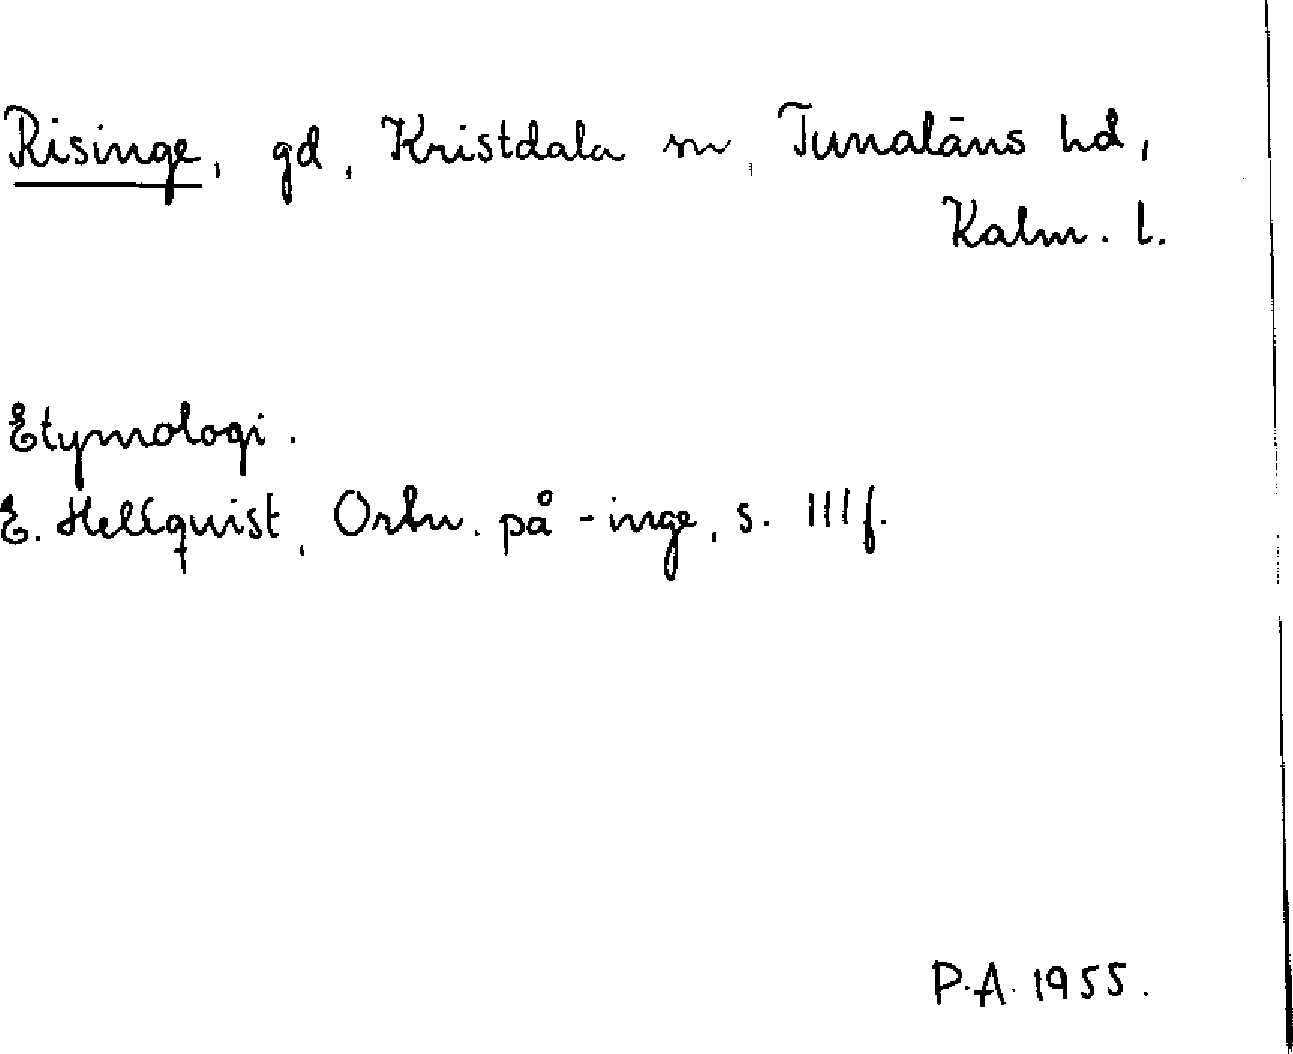 Risinge, gd, Kristdala sn, Tunaläns hd,
Kalm. l.
Etymologi.
E. Hellquist, Ortn. på -inge, s. 111 f.
P.A. 1955.